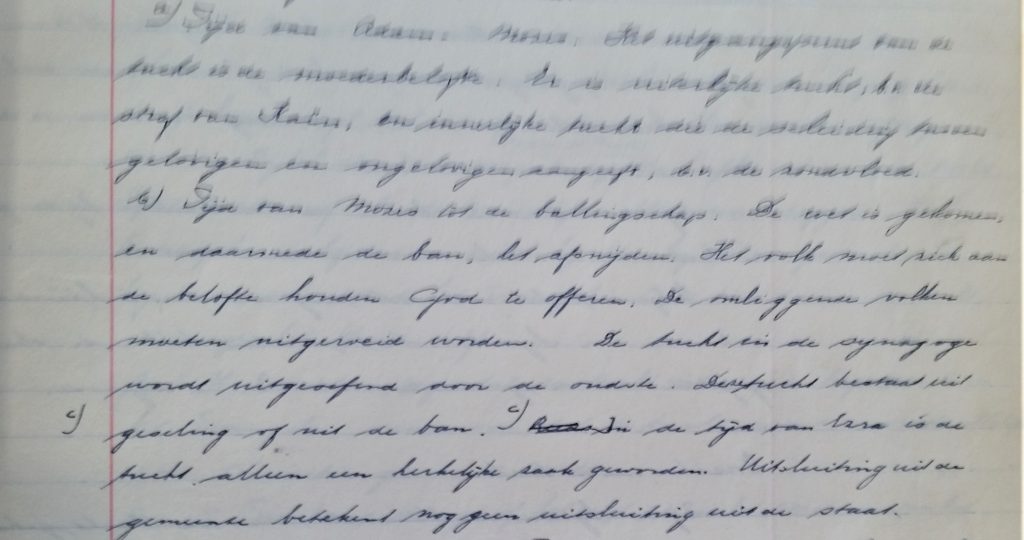 a) Tijd van Adam. Mozes. Het uitgangspunt van de
tucht is de moederbelofte. Er is uiterlijke tucht, b.v. de
straf van Kaïn, en innerlijke tucht die de scheiding tussen
gelovigen en ongelovigen aangeeft, b.v. de zondvloed.
b) Tijd van Mozes tot de ballingschap. De wet is gekomen,
en daarmede de ban, het afsnijden. Het volk moet zich aan
de belofte houden God te offeren. De omliggende volken
moeten uitgeroeid worden. De tucht in de synagoge
wordt uitgeoefend door de oudste. Deze tucht bestaat uit
c) geseling of uit de ban. c) In de tijd van Ezra is de
tucht alleen een kerkelijke zaak geworden. Uitsluiting uit de
gemeente betekent nog geen uitsluiting uit de staat.